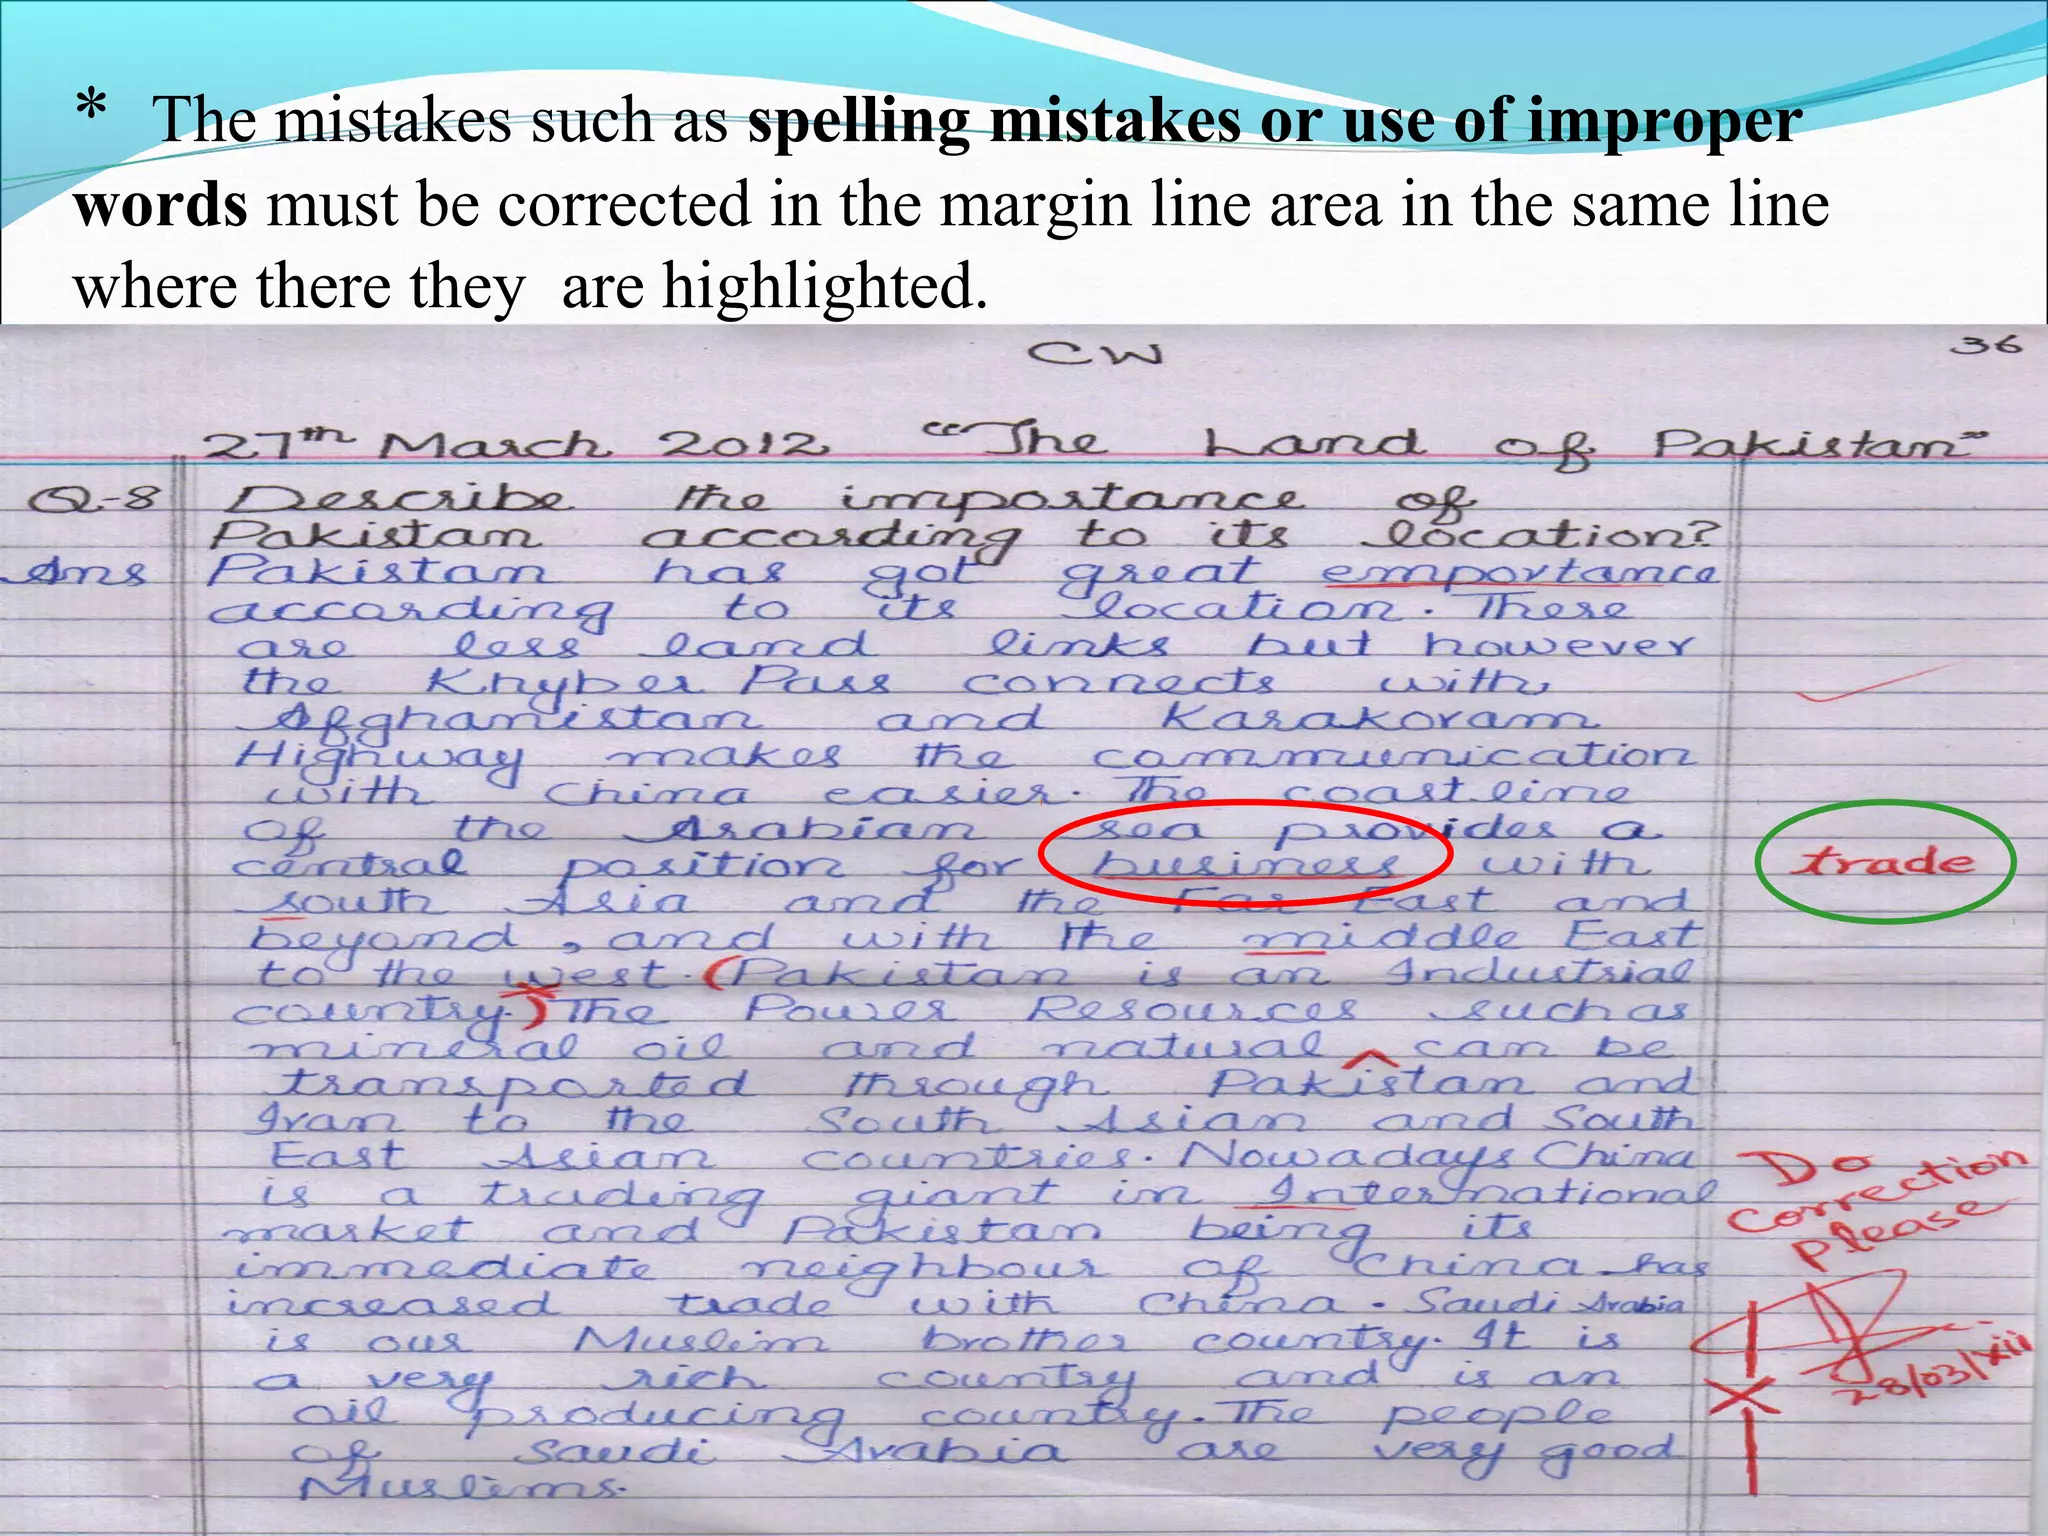 * The mistakes such as spelling mistakes or use of improper
words must be corrected in the margin line area in the same line
where there they are highlighted.
CW 36
27th March 2012 "The Land of Pakistan"
Q-8 Describe the importance of
Pakistan according to its location?
Ans Pakistan has got great emportance
according to its location. There
are less land links but however
the Khyber Pass connects with
Afghanistan and Karakoram
Highway makes the communication
with China easier. The coastline
of the Arabian sea provides a
central position for business with trade
south Asia and the Far East and
beyond, and with the middle East
to the west. (Pakistan is an Industrial
country.) The Power Resources such as
mineral oil and natural ^ can be
transported through Pakistan and
Iran to the South Asian and South
East Asian countries. Nowadays China
is a trading giant in International
market and Pakistan being its
immediate neighbour of China has
increased trade with China. Saudi Arabia
is our Muslim brother country. It is
a very rich country and is an
oil producing country. The people
of Saudi Arabia are very good
Muslims.
Do
correction
please
28/03/xii